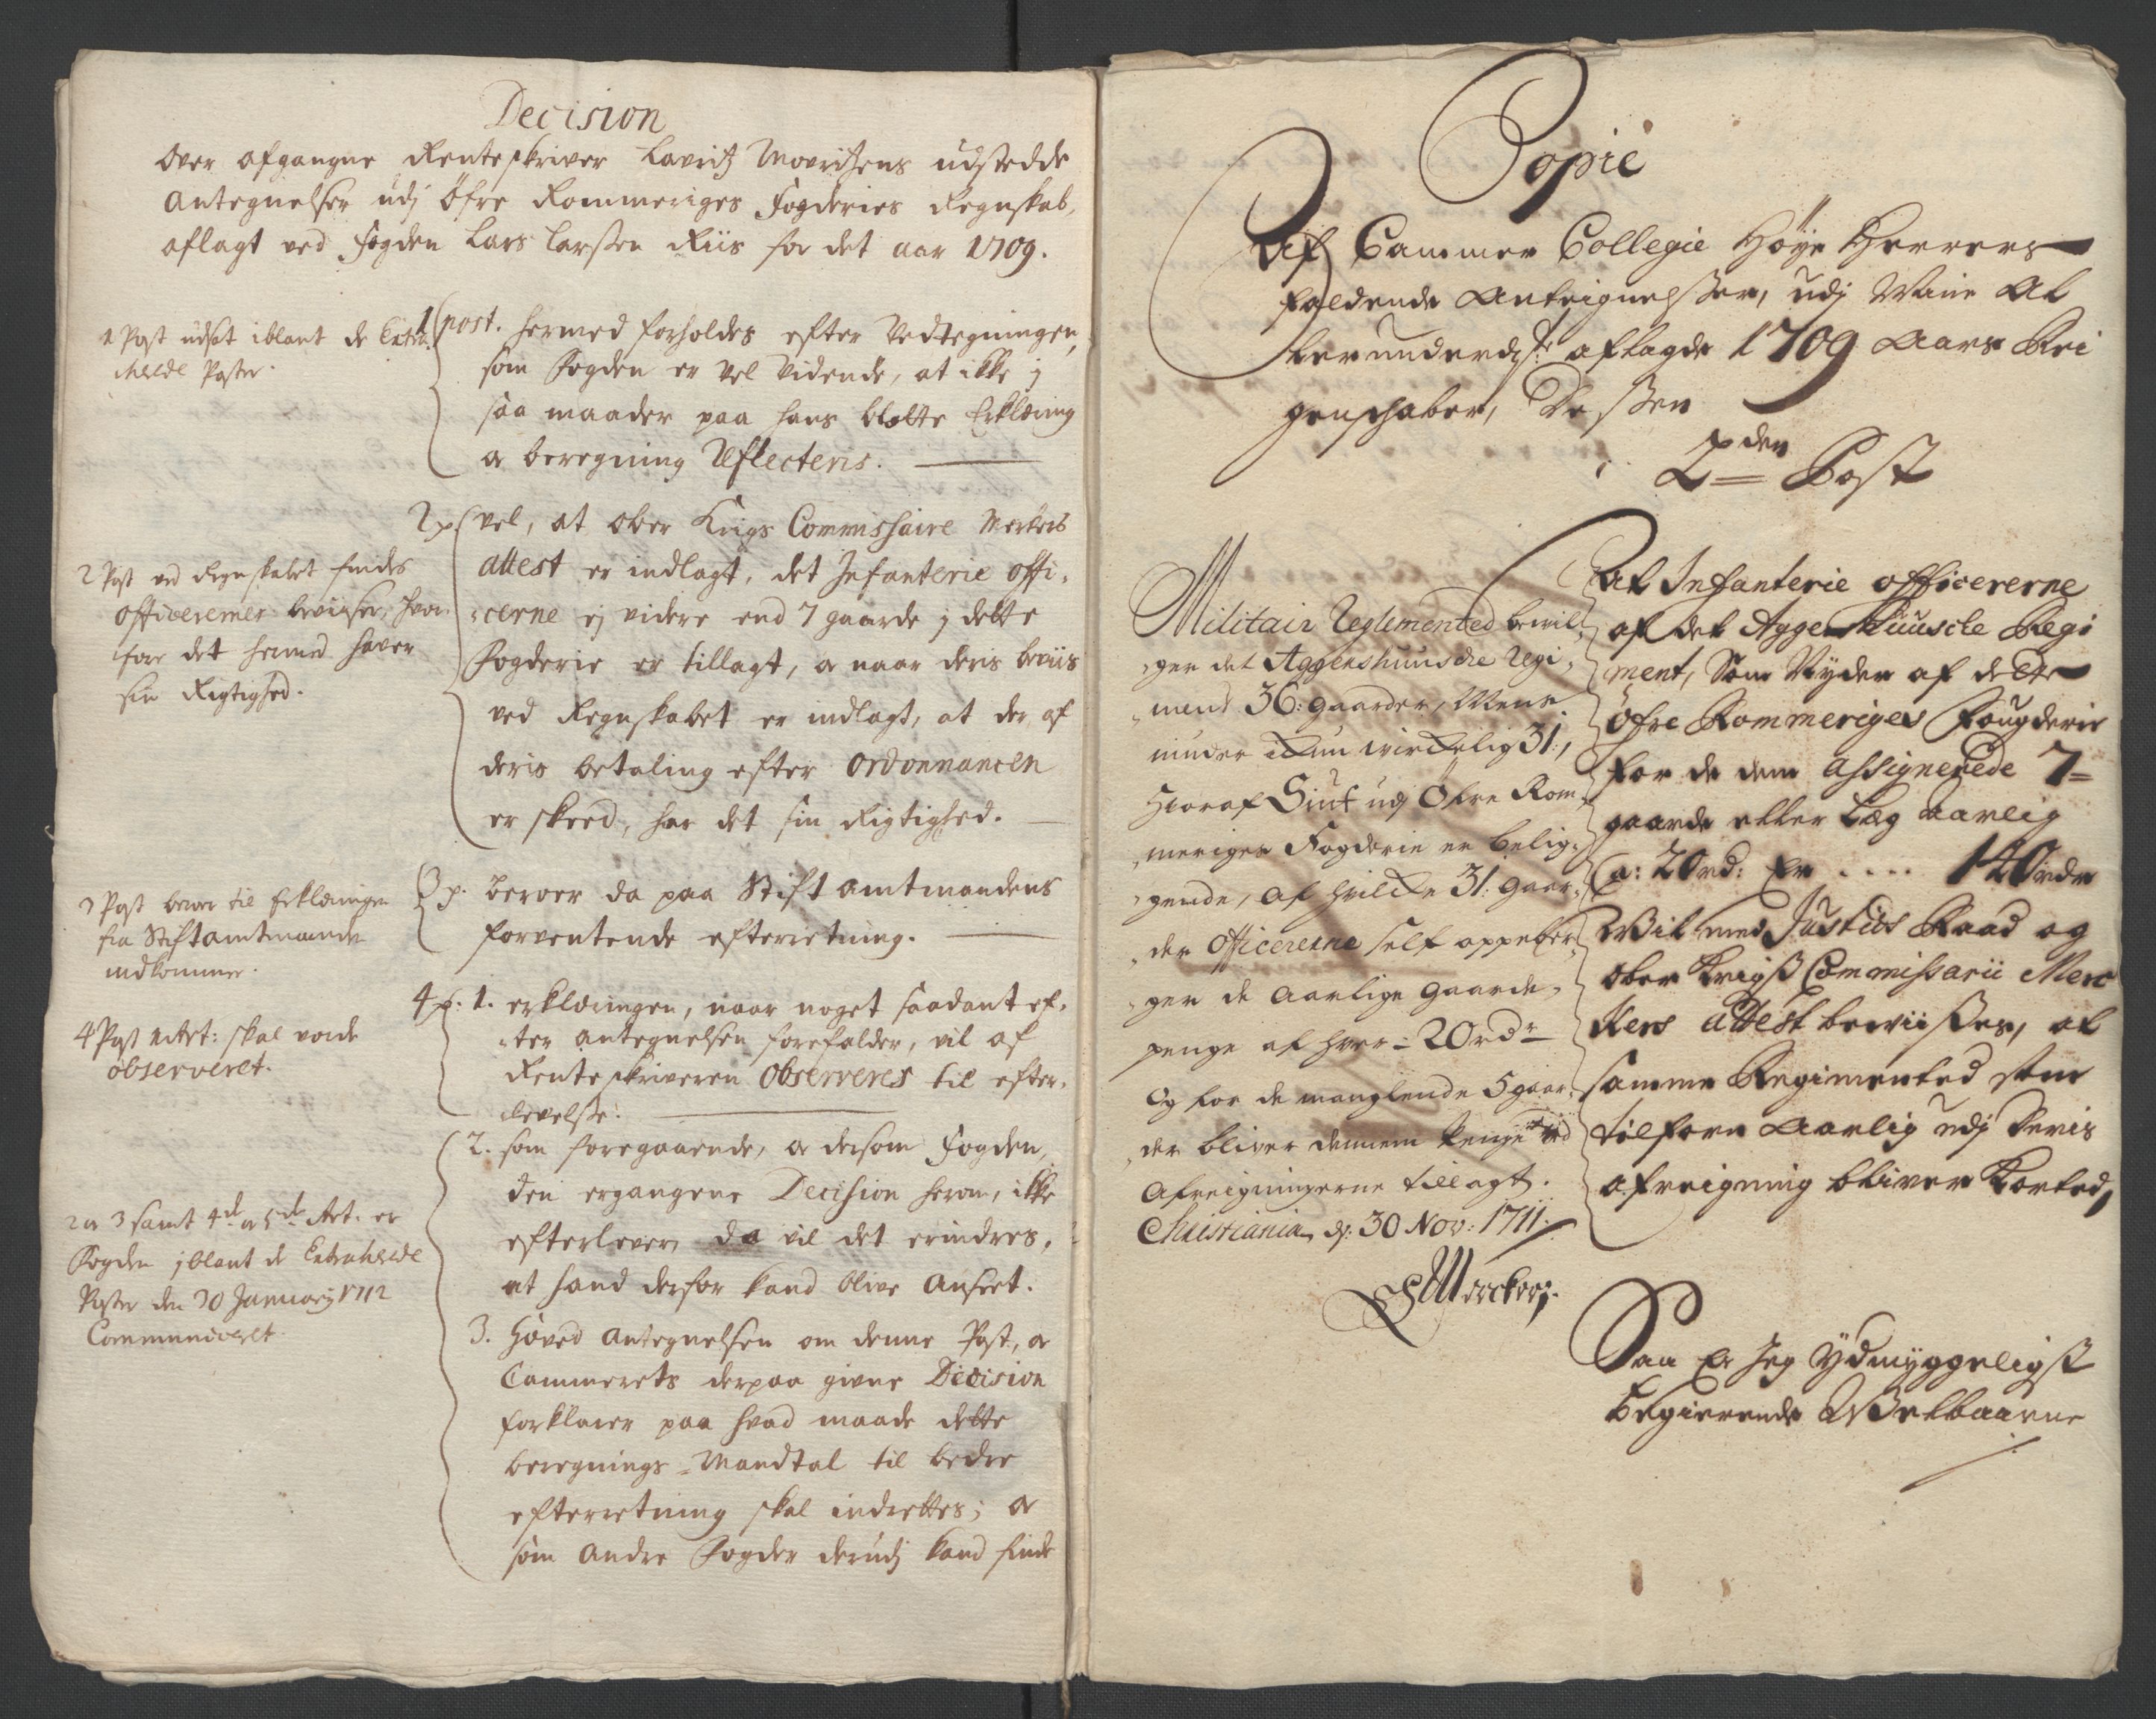 Decision
over afgangne Renteskriver Lavritz Movritzens udstedde
Antegnelser udj Öfre Rommeriges Fogderies Regnskab,
aflagt ved Fogden Lars Larssen Riis for det aar 1709.
1 Post udsat iblant de Extra-
herede Poster.
1 post. hermed forholdes efter Vedtegningen,
som Fogden er vel vidende, at ikke j
saa maader paa hans blotte Erklæring
og beregning Reflecteris.
2 Post ved Regnskabet findes
Officerernes beviiser, hvor-
fore det hermed haver
sin Rigtighed.
2 p. vel, at Ober Krigs Commissaire Merkers
attest er indlagt, det Infanterie offi-
cerne ej videre end 7 gaarde j dette
Fogderie er tillagt, og naar deris beviis
ved Regnskabet er indlagt, at der af
deris betaling efter ordonnancen
er skeed, har det sin Rigtighed.
3 Post beroer til Erklæringen
fra Stiftamtmanden
indkommer.
3 p. beroer da paa Stiftamtmandens
forventende efterretning.
4 Post 1 Art: skal vorde
observeret.
4 p. 1. erklæringen, naar noget saadant ef-
ter antegnelsen forefalder, vil af
Renteskriveren Observeres til efter-
levelse.
2 og 3 samt 4de og 5de Art. er
Fogden iblant de Extraherede
Poster den 30 January 1712
Communiceret.
2. som foregaaende, og dersom Fogden,
den ergangene Decision herom, ikke
efterlever, da vil det erindres,
at hand derfor kand blive anseet.
3. Hoved Antegnelsen om denne Post, og
Cammerets derpaa givne Decision
forklarer paa hvad maade dette
beregnings-Mandtal til bedre
efterretning skal indrettes; og
som andre Fogder derudj kand finde
Copie
Af Cammer Collegie Höye Herrers
faldende Anteignelsser, udj Mine Al
lerunderdgst: aflagde 1709 Aars Rei
genschaber, Dessen
2den Post
Militair Reglemented bevil-
ger det Aggershuusche Regi-
ment 36: gaarder, Mens
niuder ickun wirckelig 31:,
Hvoraf Siuf udj Öfre Rom-
meriges Fogderie er belig-
gende, Af hvilcke 31: gaar-
der Officererne self oppeber-
ger de Aarlige gaarde-
penge af hver: 20 rdr
Og for de manglende 5 gaar-
der bliver dennem penge ved
Afreigningerne tillagt.
Christiania, d: 30 Nov: 1711.
Mercker
At Infanterie officererne
af det Aggershuusche Regi
ment, Som Nyder af dette
Öfre Rommeriges Fougderie
for de dem Assignerede 7=
gaarde eller Læg Aarlig
a: 20 rd: Er .... 140 rdr
Vil med Justits Raad og
Ober Krigs Commissarii Merc
kers Attest beviisses, at
samme Regimented som
tilforn Aarlig udj deris
afreigning bliver korted,
Saa Er Jeg ydmyggeligst
begierende Welbaarne